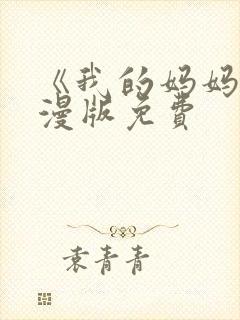 《我的妈妈
漫版免费
袁青青